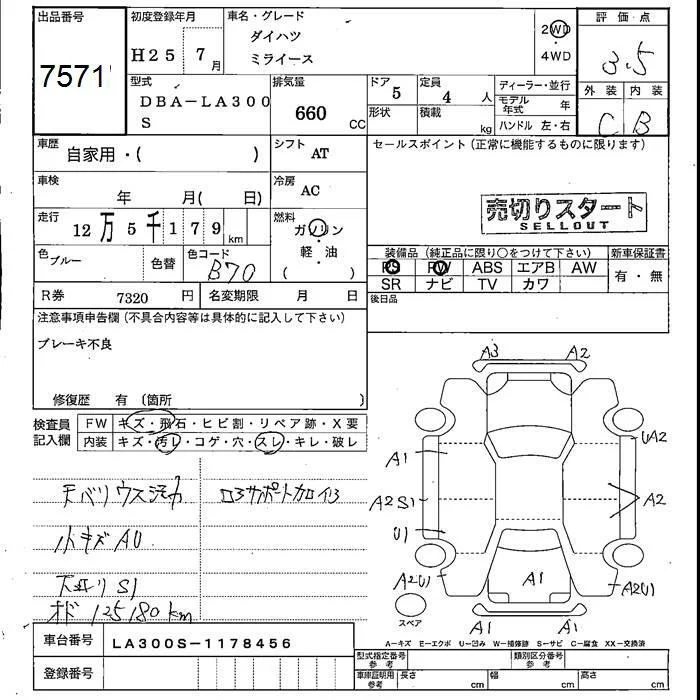 出品番号 初度登録年月 車名・グレード 評価点
7571
H25 7月
ダイハツ
ミライース
2WD
・
4WD
3.5
型式 排気量 ドア 定員 ディーラー・並行 外装 内装
DBA-LA300
S
660 CC
5
4 人
モデル年式 年
形状 積載 kg ハンドル 左・右
C B
車歴 自家用・( )
シフト AT
セールスポイント(正常に機能するものに限ります)
車検 年 月( 日)
冷房 AC
売切りスタート
SELLOUT
走行 12万5千179km
燃料 ガソリン
軽・油
( )
色 ブルー 色替 色コード B70
装備品(純正品に限り○をつけて下さい) 新車保証書
PS PW ABS エアB AW 有・無
SR ナビ TV カワ
R券 7320 円 名変期限 月 日
後日品
注意事項申告欄(不具合内容等は具体的に記入して下さい)
ブレーキ不良
修復歴 有 〔箇所 〕
検査員
記入欄
FW キズ・飛石・ヒビ割・リペア跡・X要
内装 キズ・汚レ・コゲ・穴・スレ・キレ・破レ
天バリウス汚れ
小キズAU
S1
オド 125180km
A3 A2
A1 UA2
A2S1 A2
U1
A2U1 A1 A2U1
スペア
A1 A1
A-キズ E-エクボ U-凹み W-補修跡 S-サビ C-腐食 XX-交換済
車台番号 LA300S-1178456
型式指定番号 参考 類別区分番号 参考
登録番号
車庫証明用 参考 長さ cm 幅 cm 高さ cm